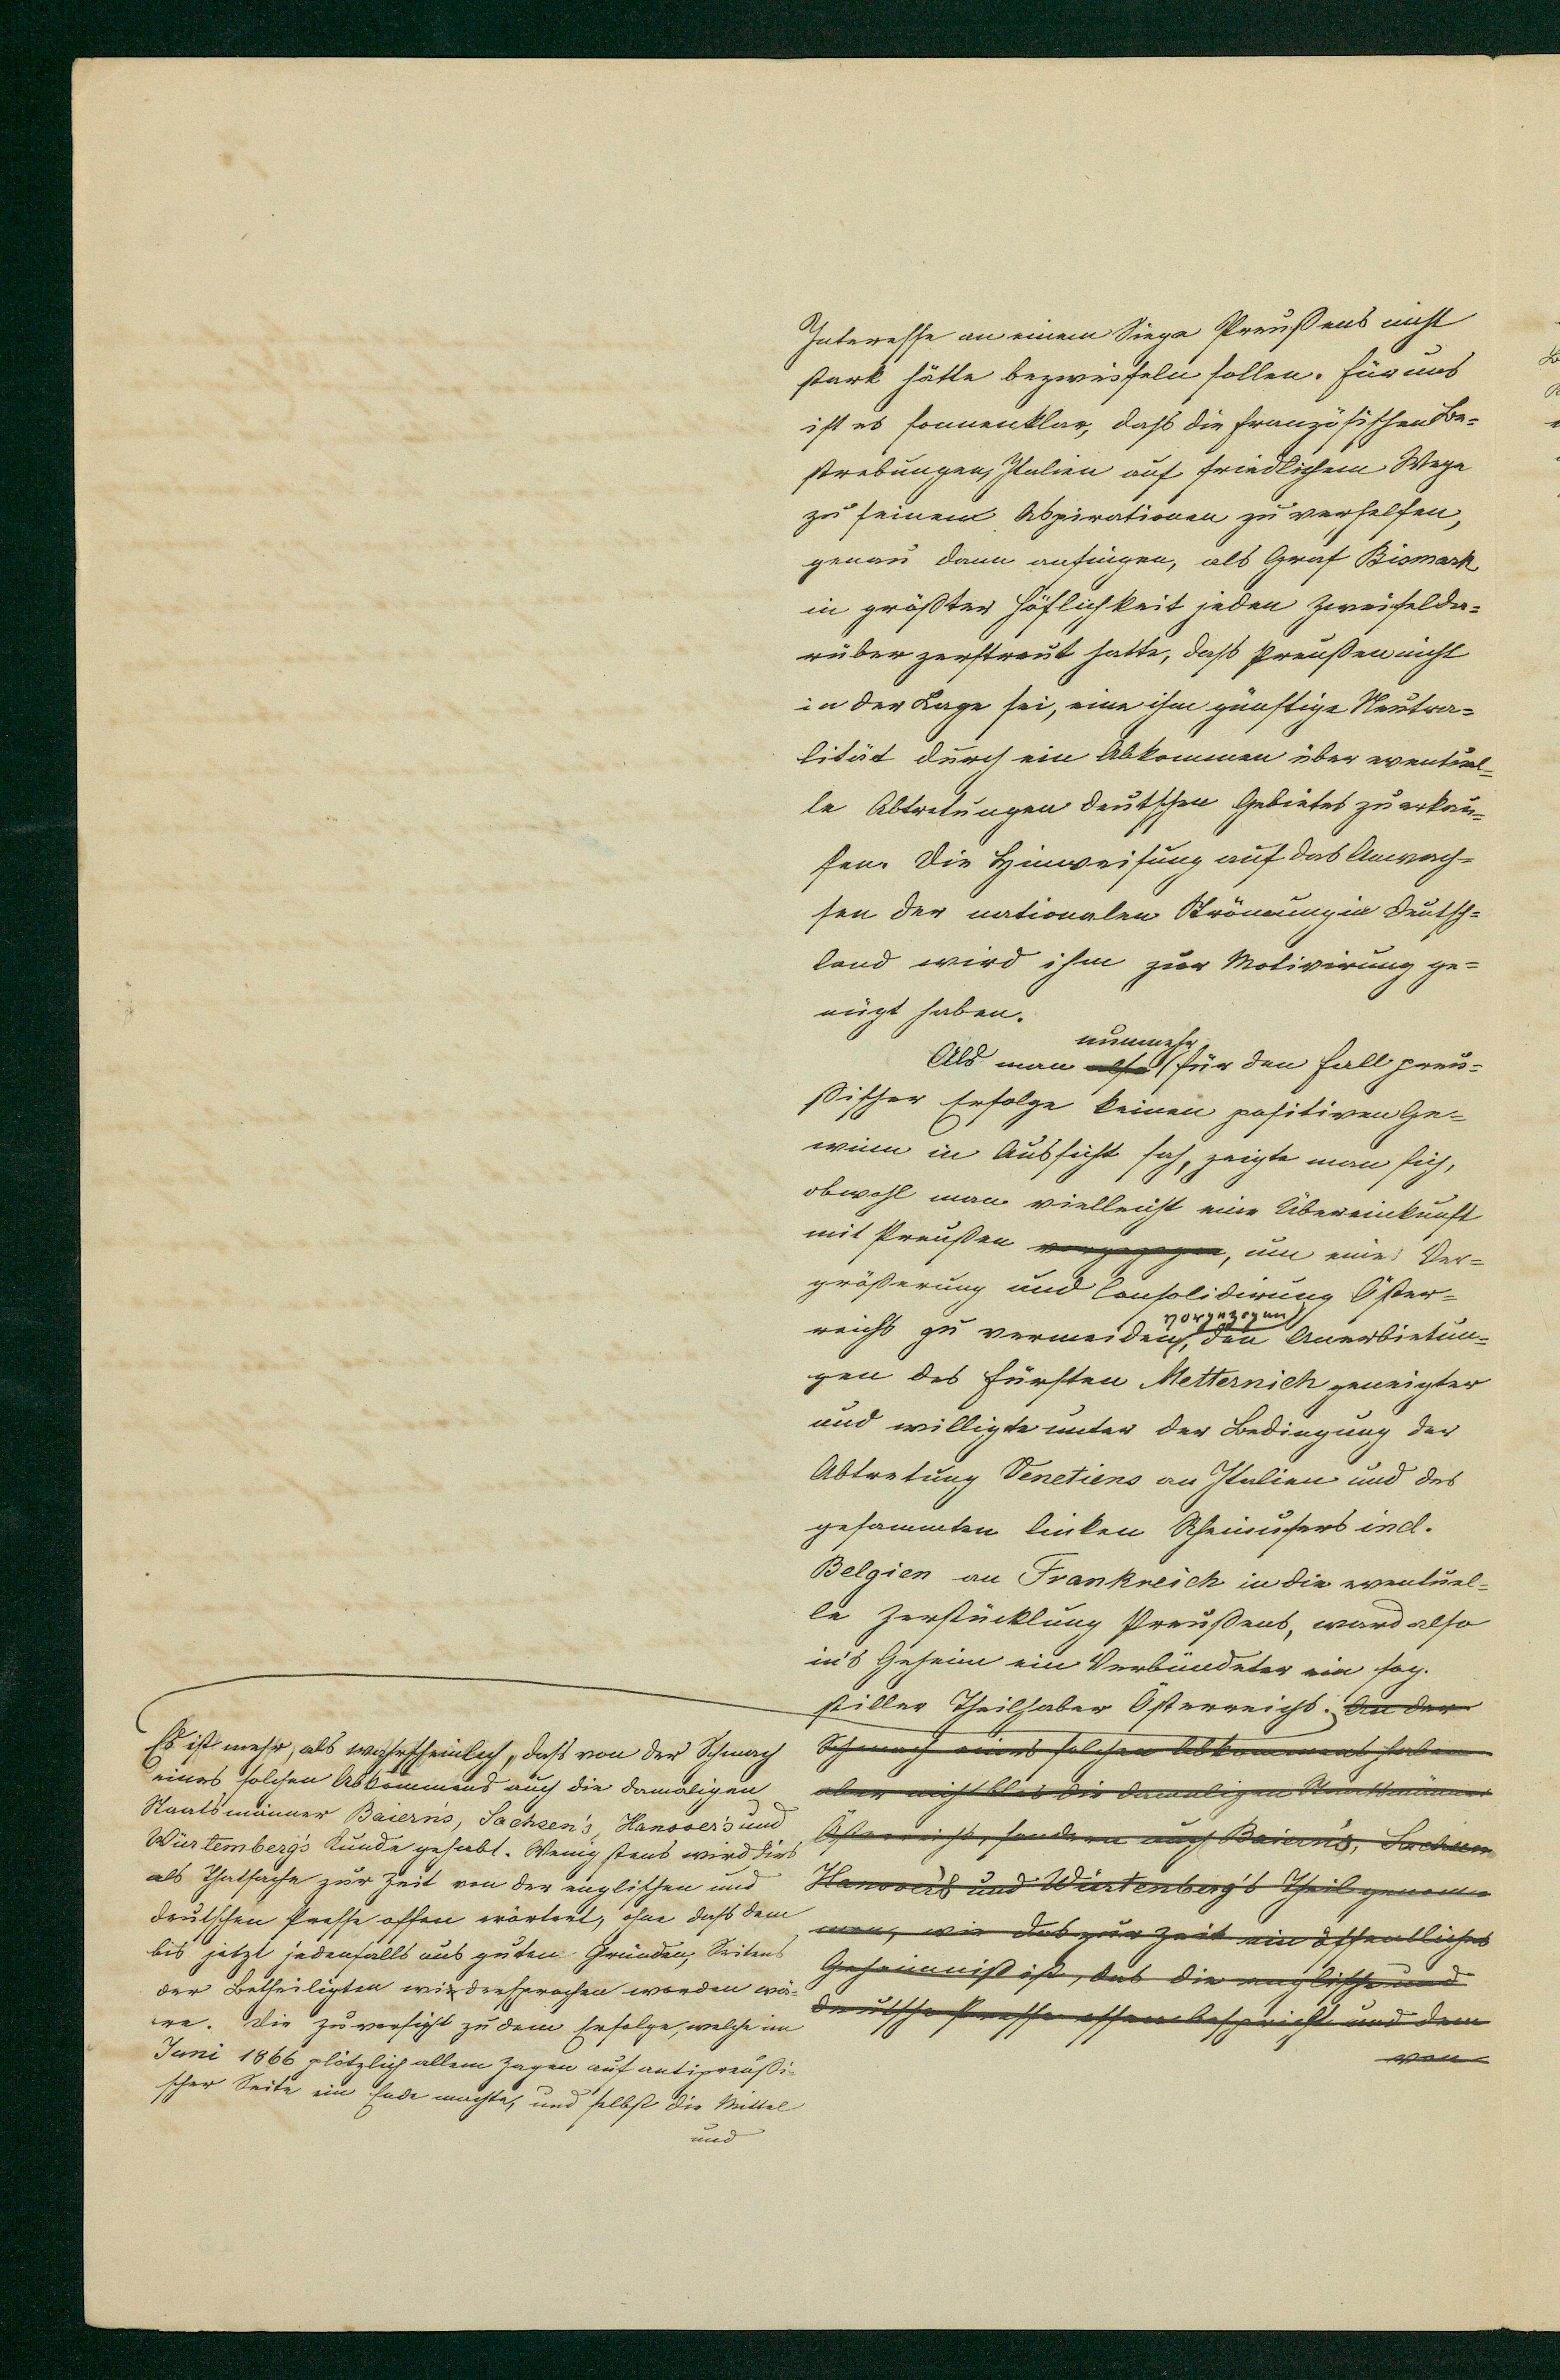 Interesse an einem Siege Preußens nicht
stark hätte bezweifeln sollen. Für uns
ist es sonnenklar, daß die französischen Be=
strebungen, Italien auf friedlichem Wege
zu seinen Aspirationen zu verhelfen,
genau dann anfingen, als Graf Bismark
in größter Höflichkeit jeden Zweifel da=
rüber zerstreut hatte, daß Preußen nicht
in der Lage sei, eine ihm günstige Neutra=
lität durch ein Abkommen über eventuel=
le Abtretungen deutschen Gebietes zu erkau=
fen. Die Hinweisung auf das Anwach=
sen der nationalen Strömung in Deutsch=
land wird ihm zur Motivirung ge=
nügt haben.
nunmehr
Als man also für den Fall preu=
ßischer Erfolge keinen positiven Ge=
winn in Aussicht sah, zeigte man sich,
obwohl man vielleicht eine Übereinkunft
mit Preußen vorgezogen, um eine Ver=
größerung und Consolidirung Öster=
vorgezogen
reichs zu vermeiden, den Anerbietun=
gen des Fürsten Metternich geneigter
und willigte unter der Bedingung der
Abtretung Venetiens an Italien und des
gesammten linken Rheinufers incl.
Belgien an Frankreich in die eventuel=
le Zerstücklung Preußens, ward also
in's Geheim ein Verbündeter ein sog.
stiller Theilhaber Österreichs. An der
Schmach eines solchen Abkommens haben
aber nicht blos die damaligen Staatsmänner
Österreichs, sondern auch Baiern's, Sachsen
Hanover's und Würtenberg's Theil genom=
men, wie das zur Zeit ein öffentliches
Geheimniß ist, das die englische und
deutsche Presse offen bespricht und dem
von
Es ist mehr, als wahrscheinlich, daß von der Schmach
eines solchen Abkommens auch die damaligen
Staatsmänner Baiern's, Sachsen's, Hanover's und
Würtemberg's Kunde gehabt. Wenigstens wird dies
als Thatsache zur Zeit von der englischen und
deutschen Presse offen erörtert, ohne daß dem
bis jetzt jedenfalls aus guten Gründen, Seitens
der Betheiligten widersprochen worden wä=
re. Die Zuversicht zu dem Erfolge, welche im
Juni 1866 plötzlich allem Zagen auf antipreußi=
scher Seite ein Ende machte, und selbst die Mittel
und